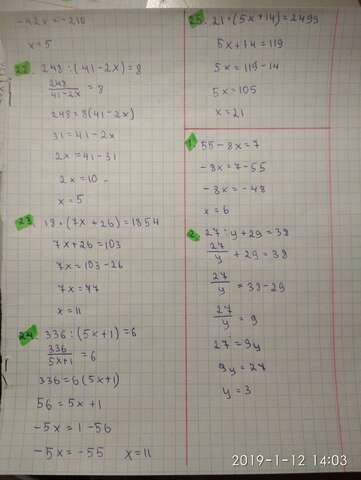 -42x = -210
x=5
22. 248:(41-2x)=8
248/(41-2x) = 8
248=8(41-2x)
31=41-2x
2x=41-31
2x=10
x=5
23. 18·(7x+26)=1854
7x+26=103
7x=103-26
7x=77
x=11
24. 336:(5x+1)=6
336/(5x+1) = 6
336=6(5x+1)
56=5x+1
-5x=1-56
-5x=-55 x=11
25. 21·(5x+14)=2499
5x+14=119
5x=119-14
5x=105
x=21
1. 55-8x=7
-8x=7-55
-8x=-48
x=6
2. 27:y+29=38
27/y +29=38
27/y =38-29
27/y = 9
27=9y
9y=27
y=3
2019-1-12 14:03